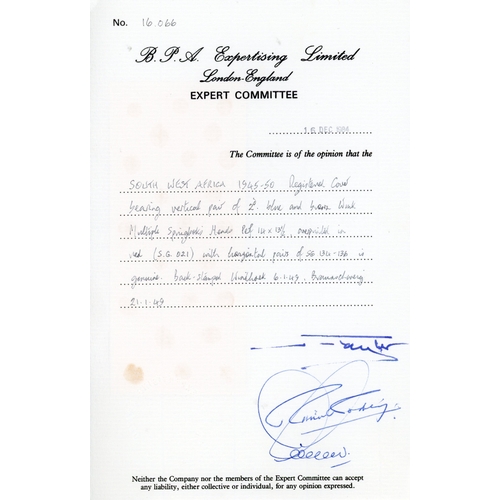 No. 16.066
B.P.A. Expertising Limited
London-England
EXPERT COMMITTEE
16 DEC
The Committee is of the opinion that the
SOUTH WEST AFRICA 1945-50 Registered Cover
bearing vertical pair of 2d. blue and brown Wmk
Multiple Springbok's Heads Perf 14 x 13½ overprinted in
red (S.G. 021) with horizontal pair of SG 134-136 is
genuine. Back-stamped Windhoek 6.1.49.
21-1-49
Neither the Company nor the members of the Expert Committee can accept
any liability, either collective or individual, for any opinion expressed.